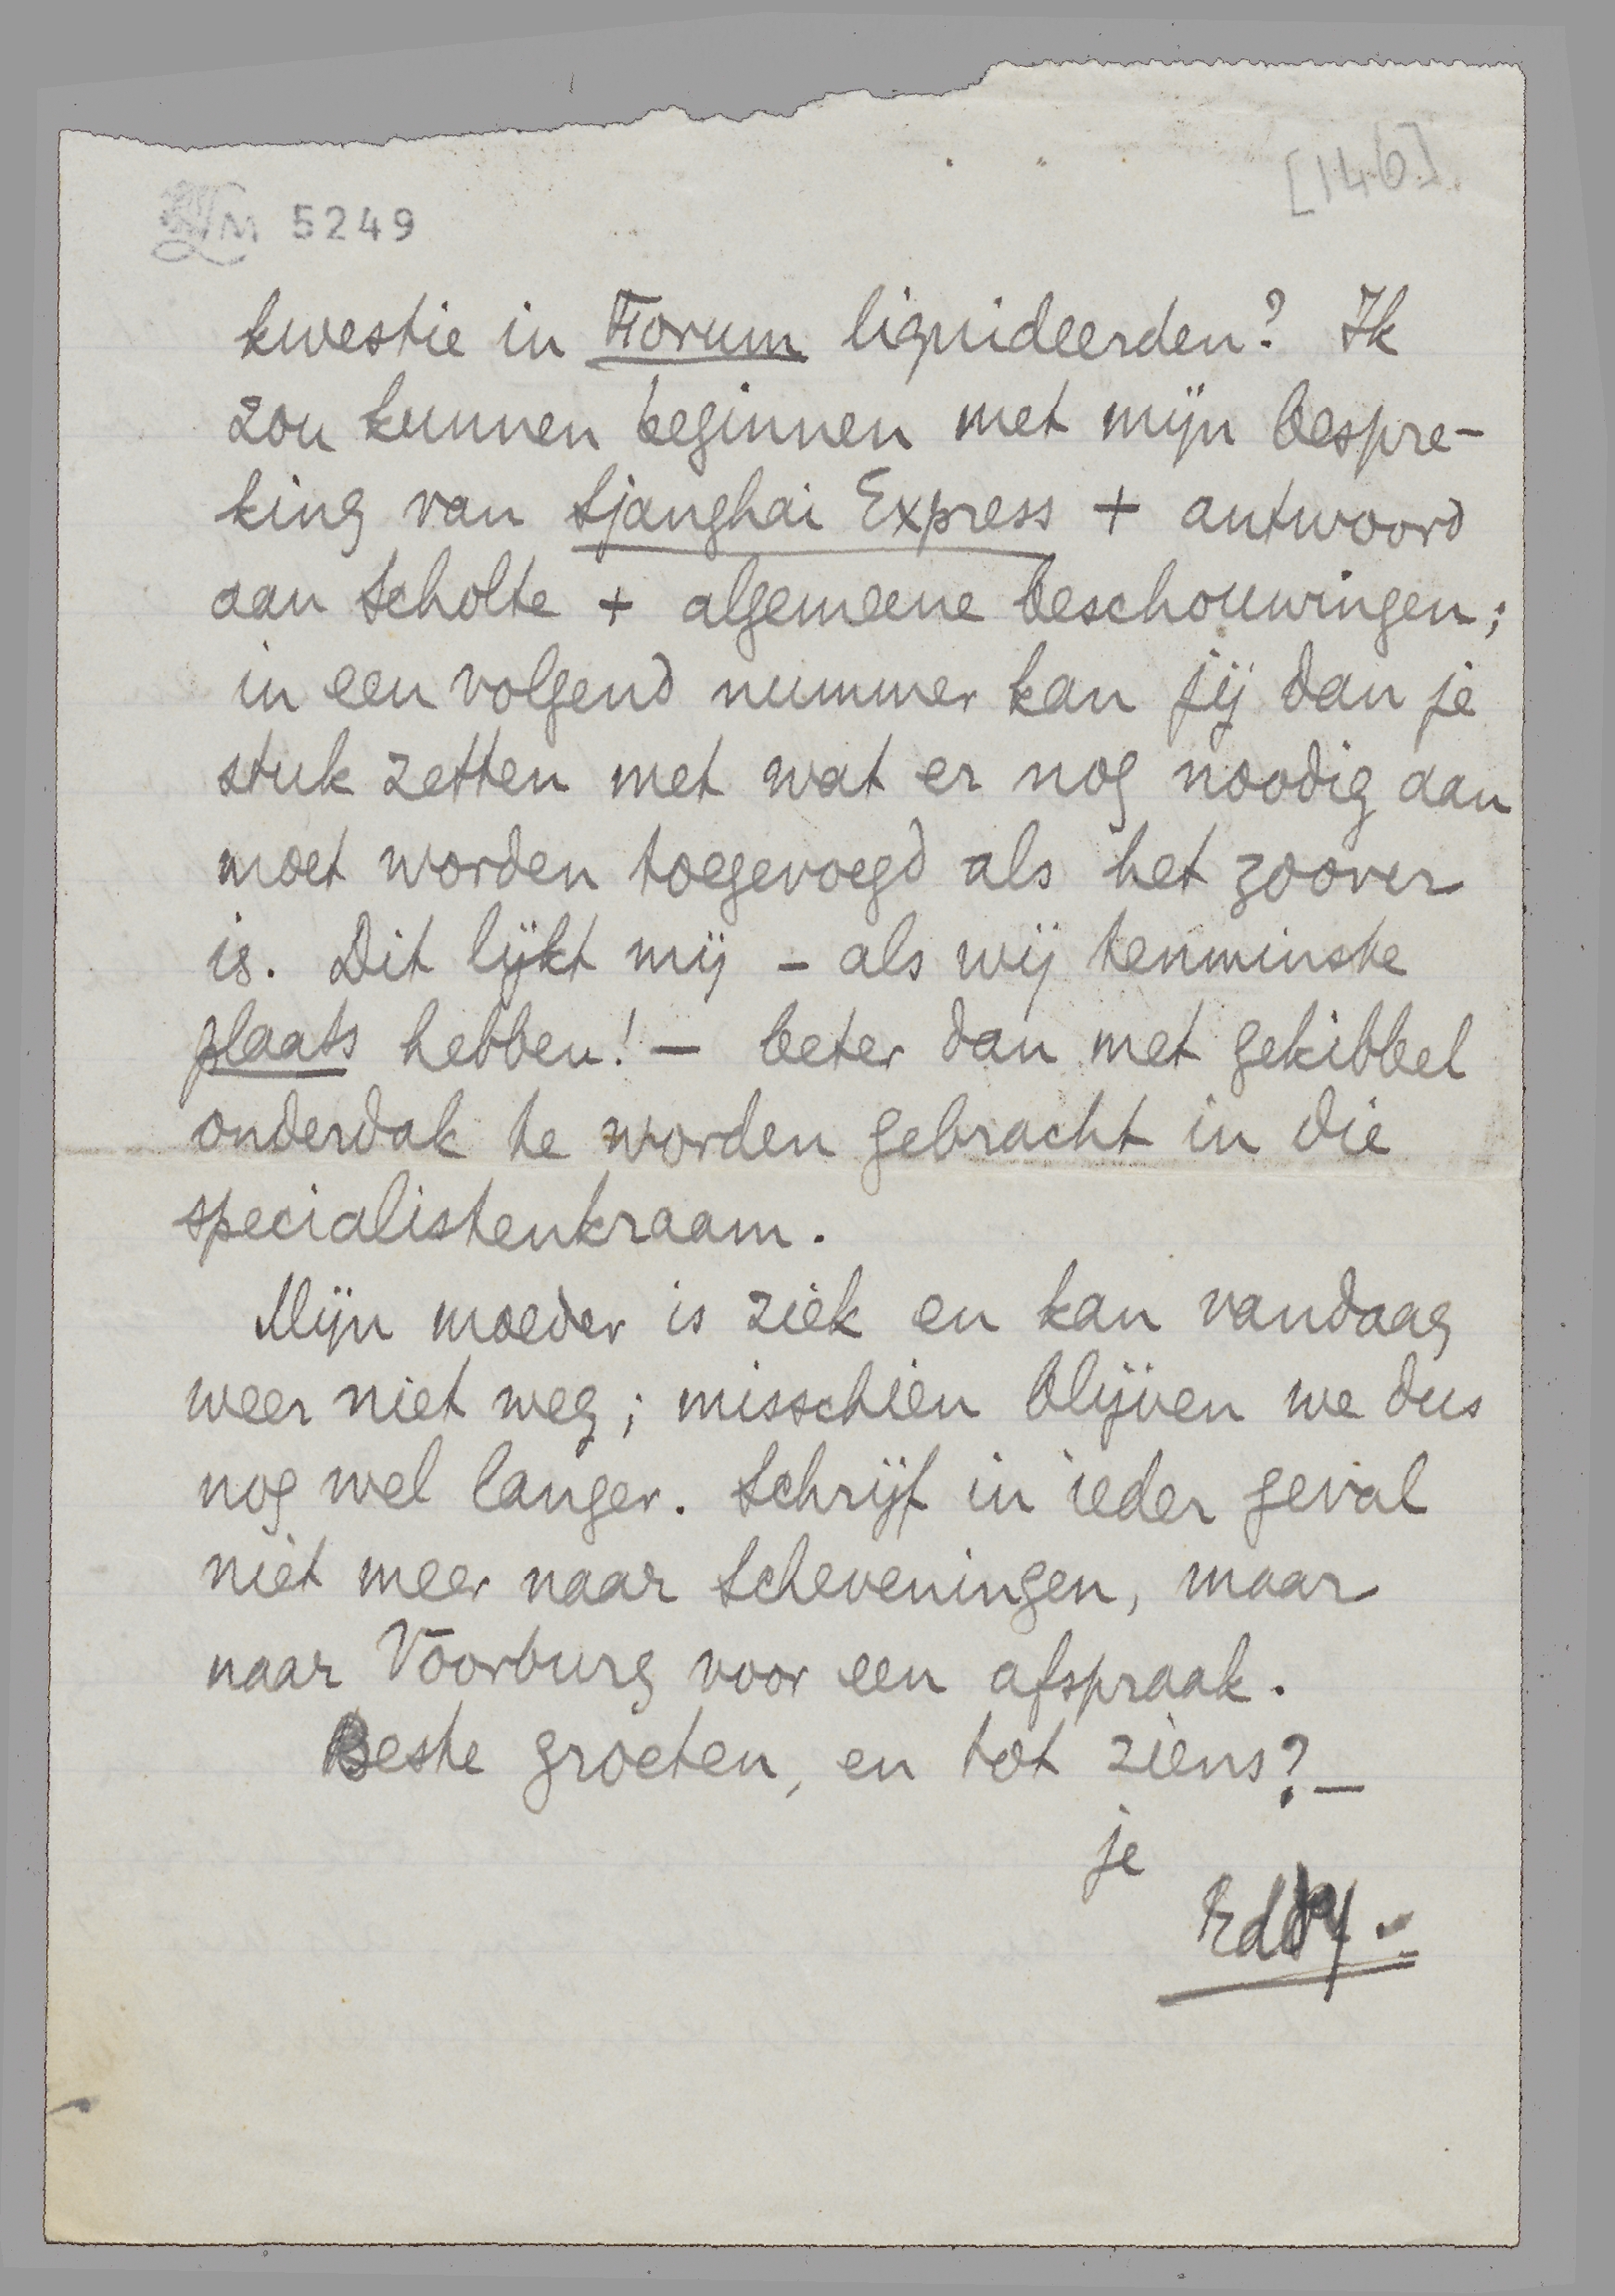 [146]
LM 5249
kwestie in Forum liquideerden? Ik
zou kunnen beginnen met mijn bespre-
king van Sjanghai Express + antwoord
aan Scholte + algemeene beschouwingen;
in een volgend nummer kan jij dan je
stuk zetten met wat er nog noodig aan
moet worden toegevoegd als het zoover
is. Dit lijkt mij – als wij tenminste
plaats hebben! – beter dan met gekibbel
onderdak te worden gebracht in die
specialistenkraam.
Mijn moeder is ziek en kan vandaag
weer niet weg; misschien blijven we dus
nog wel langer. Schrijf in ieder geval
niet meer naar Scheveningen, maar
naar Voorburg voor een afspraak.
Beste groeten, en tot ziens? –
je
Eddy. –